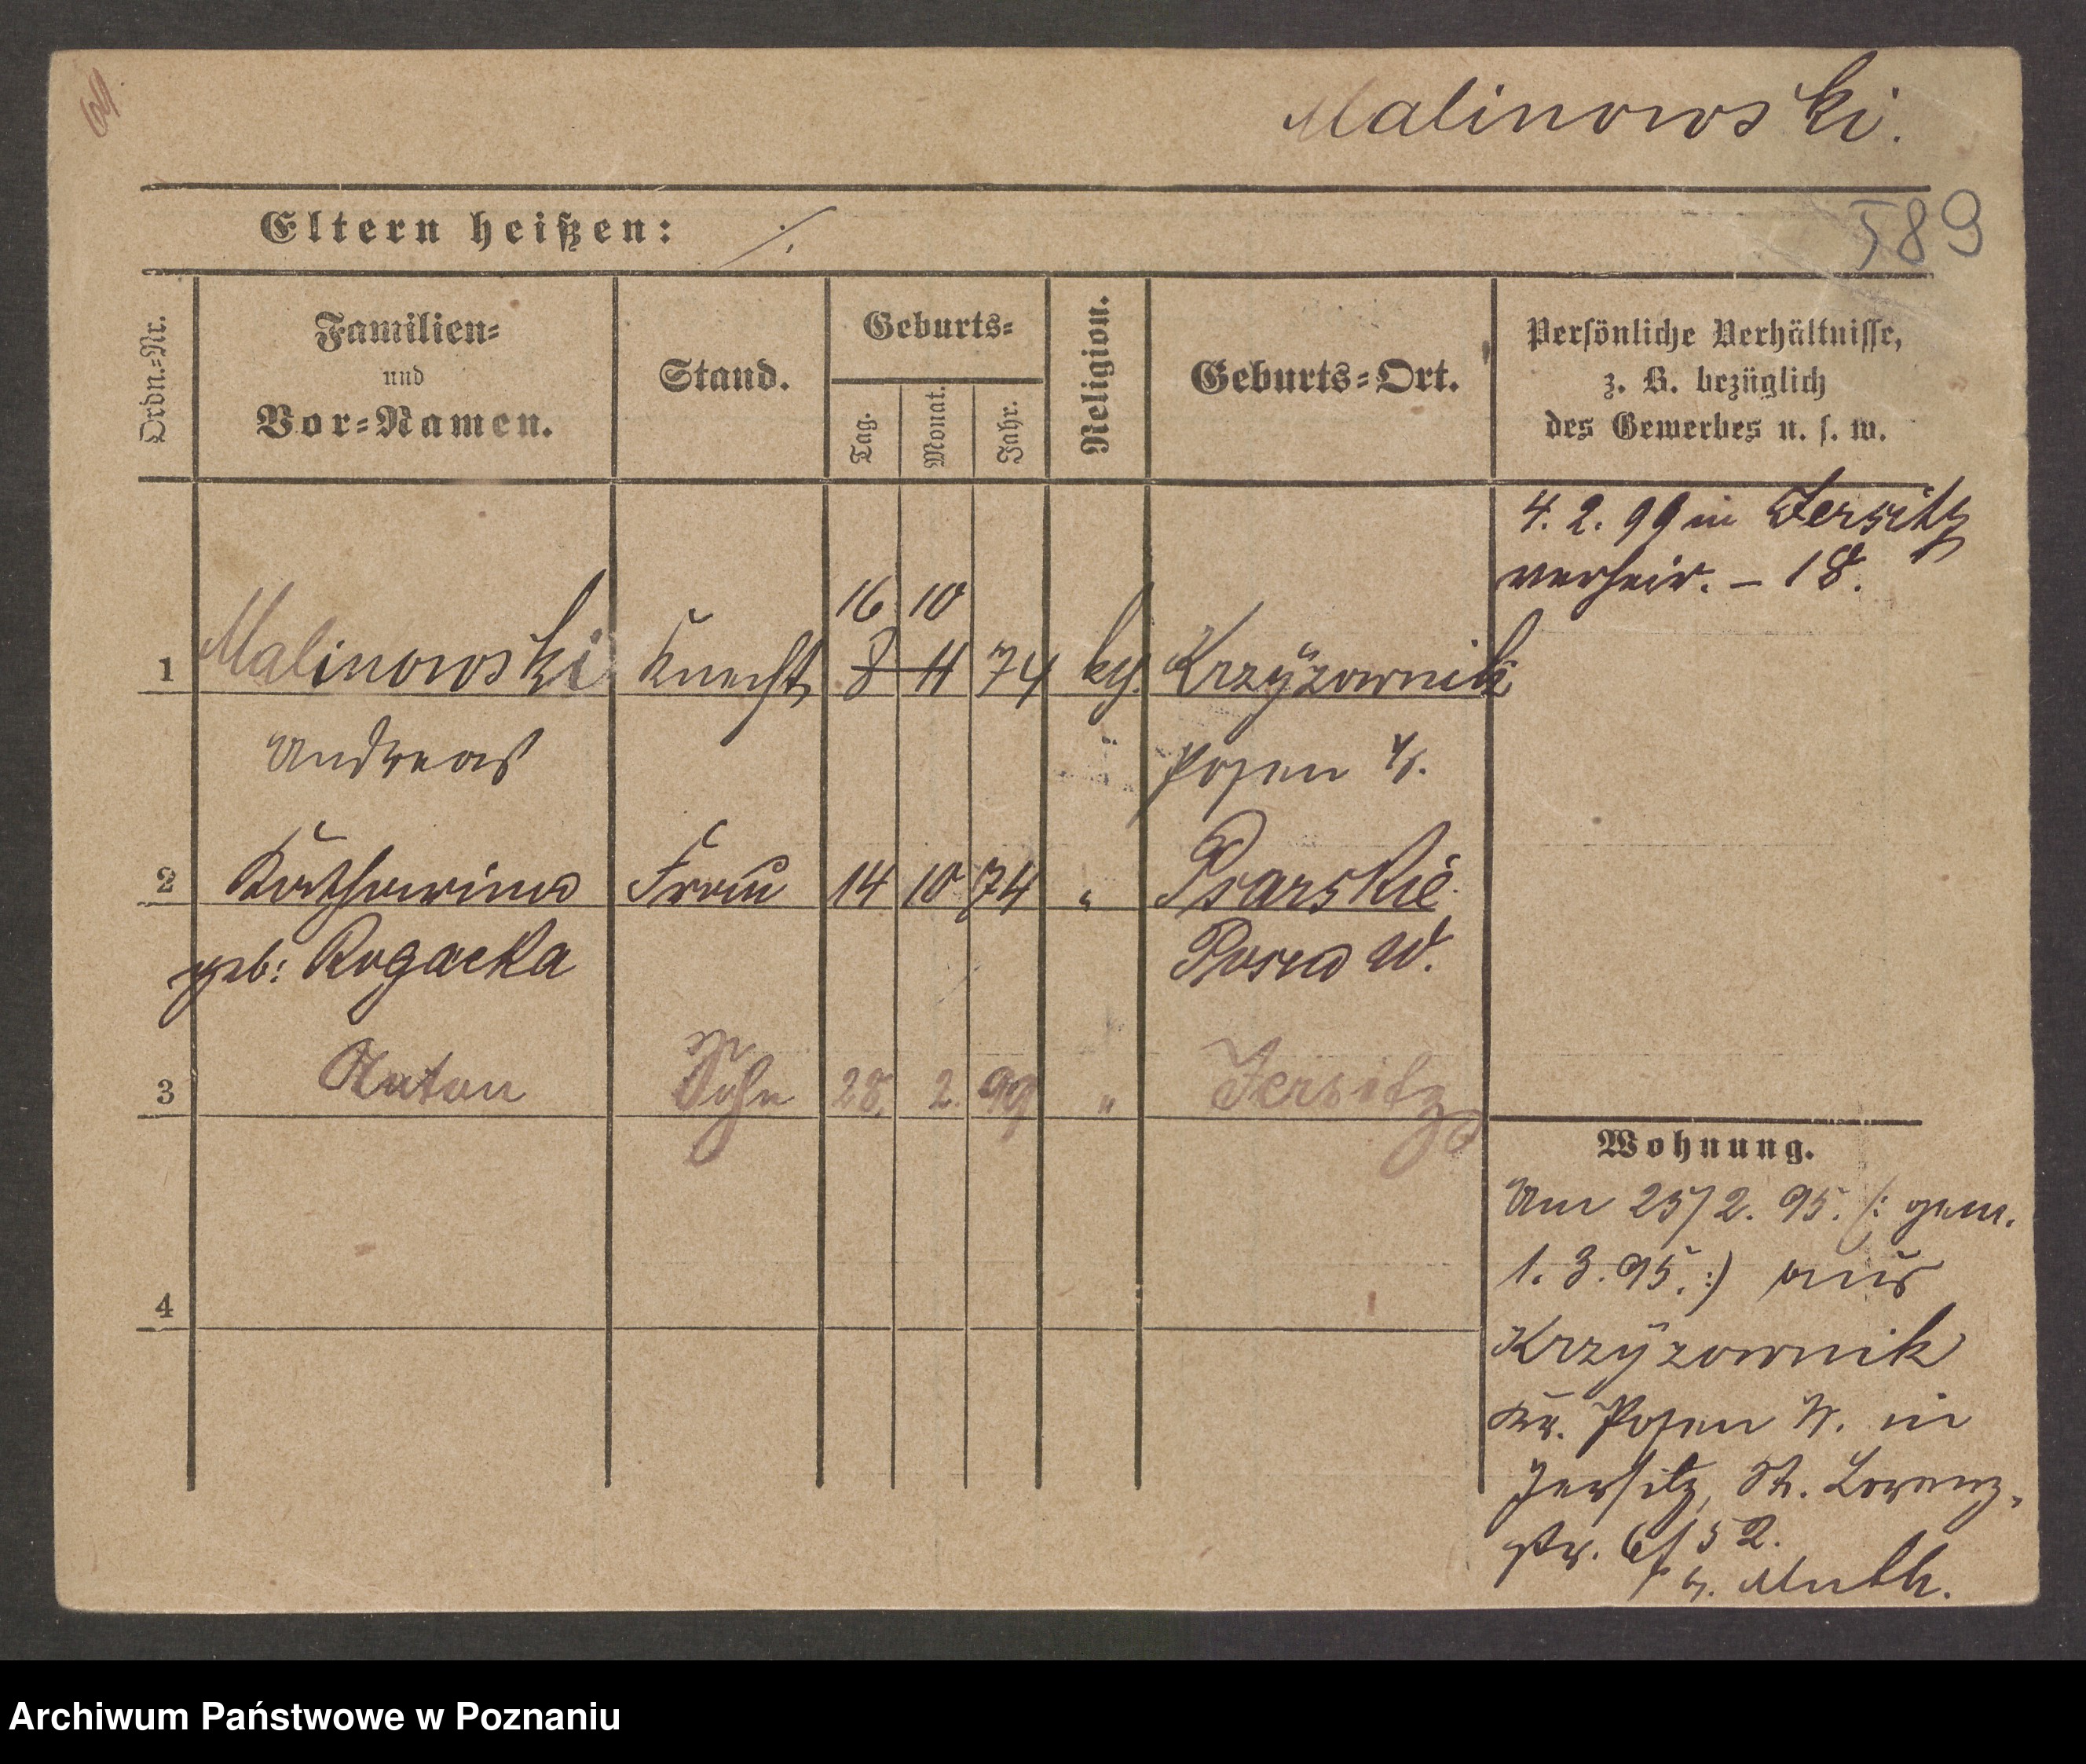 64
Malinowski.
Eltern heißen: ./.
589
Ordn.=Nr.
Familien=
und
Vor=Namen.
Stand.
Geburts=
Tag.
Monat.
Jahr.
Religion.
Geburts=Ort.
Persönliche Verhältnisse,
z. B. bezüglich
des Gewerbes u. s. w.
4. 2. 99 in Jersitz
verheir. – 18.
16 10
1 Malinowski Knecht 8 11 74 kth. Krzyżownik
Andreas Posen W.
2 Katharina Frau 14 10 74 " Psarskie
geb: Rogacka Posen W.
3 Anton Sohn 28. 2. 99 " Jersitz
4
Wohnung.
Am 25/2. 95. /: gem.
1. 3. 95. :/ aus
Krzyżownik
Kr. Posen W. in
Jersitz, St. Lorenz-
str. 6/52.
b. Muth.
Archiwum Państwowe w Poznaniu